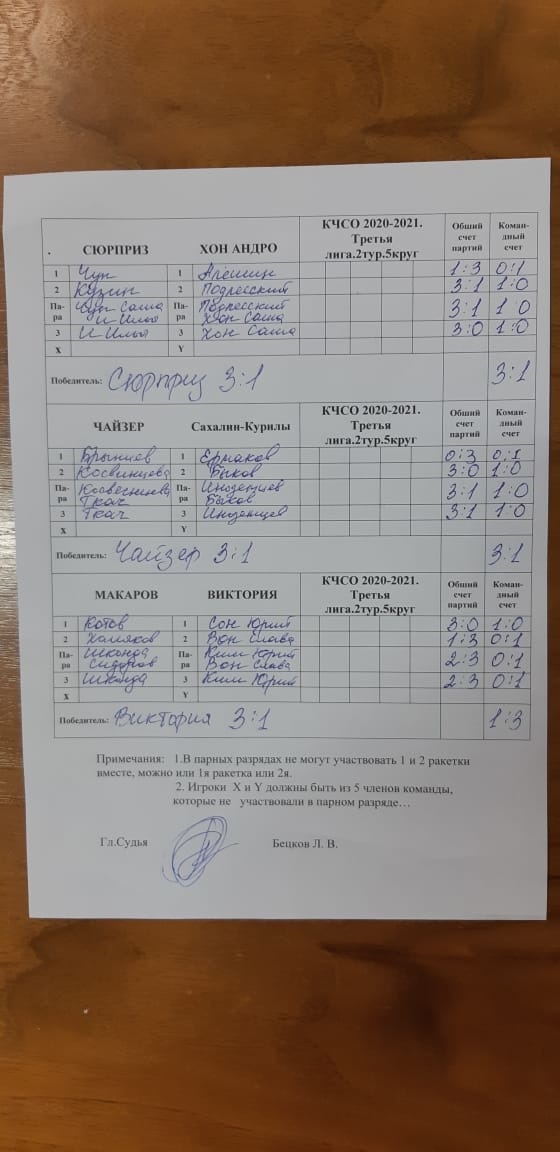 . СЮРПРИЗ ХОН АНДРО КЧСО 2020-2021. Третья лига.2тур.5круг Общий счет партий Коман-дный счет
1 Чун 1 Алёшин 1:3 0:1
2 Кузин 2 Подлесский 3:1 1:0
Па-ра Чун Саша И Илья Па-ра Подлесский Хон Саша 3:1 1 0
3 И Илья 3 Хон Саша 3:0 1:0
X Y
Победитель: Сюрприз 3:1 3:1
ЧАЙЗЕР Сахалин-Курилы КЧСО 2020-2021. Третья лига.2тур.5круг Общий счет партий Коман-дный счет
1 1 Ермаков 0:3 0:1
2 2 Быков 3:0 1:0
Па-ра Ткач Па-ра Быков 3:1 1:0
3 Ткач 3 3:1 1:0
X Y
Победитель: Чайзер 3:1 3:1
МАКАРОВ ВИКТОРИЯ КЧСО 2020-2021. Третья лига.2тур.5круг Общий счет партий Коман-дный счет
1 Котов 1 Сон Юрий 3:0 1:0
2 Халяков 2 Вон Слава 1:3 0:1
Па-ра Шконда Сидоров Па-ра Ким Юрий Вон Слава 2:3 0:1
3 Шконда 3 Ким Юрий 2:3 0:1
X Y
Победитель: Виктория 3:1 1:3
Примечания: 1.В парных разрядах не могут участвовать 1 и 2 ракетки
вместе, можно или 1я ракетка или 2я.
2. Игроки X и Y должны быть из 5 членов команды,
которые не участвовали в парном разряде…
Гл.Судья Бецков Л. В.